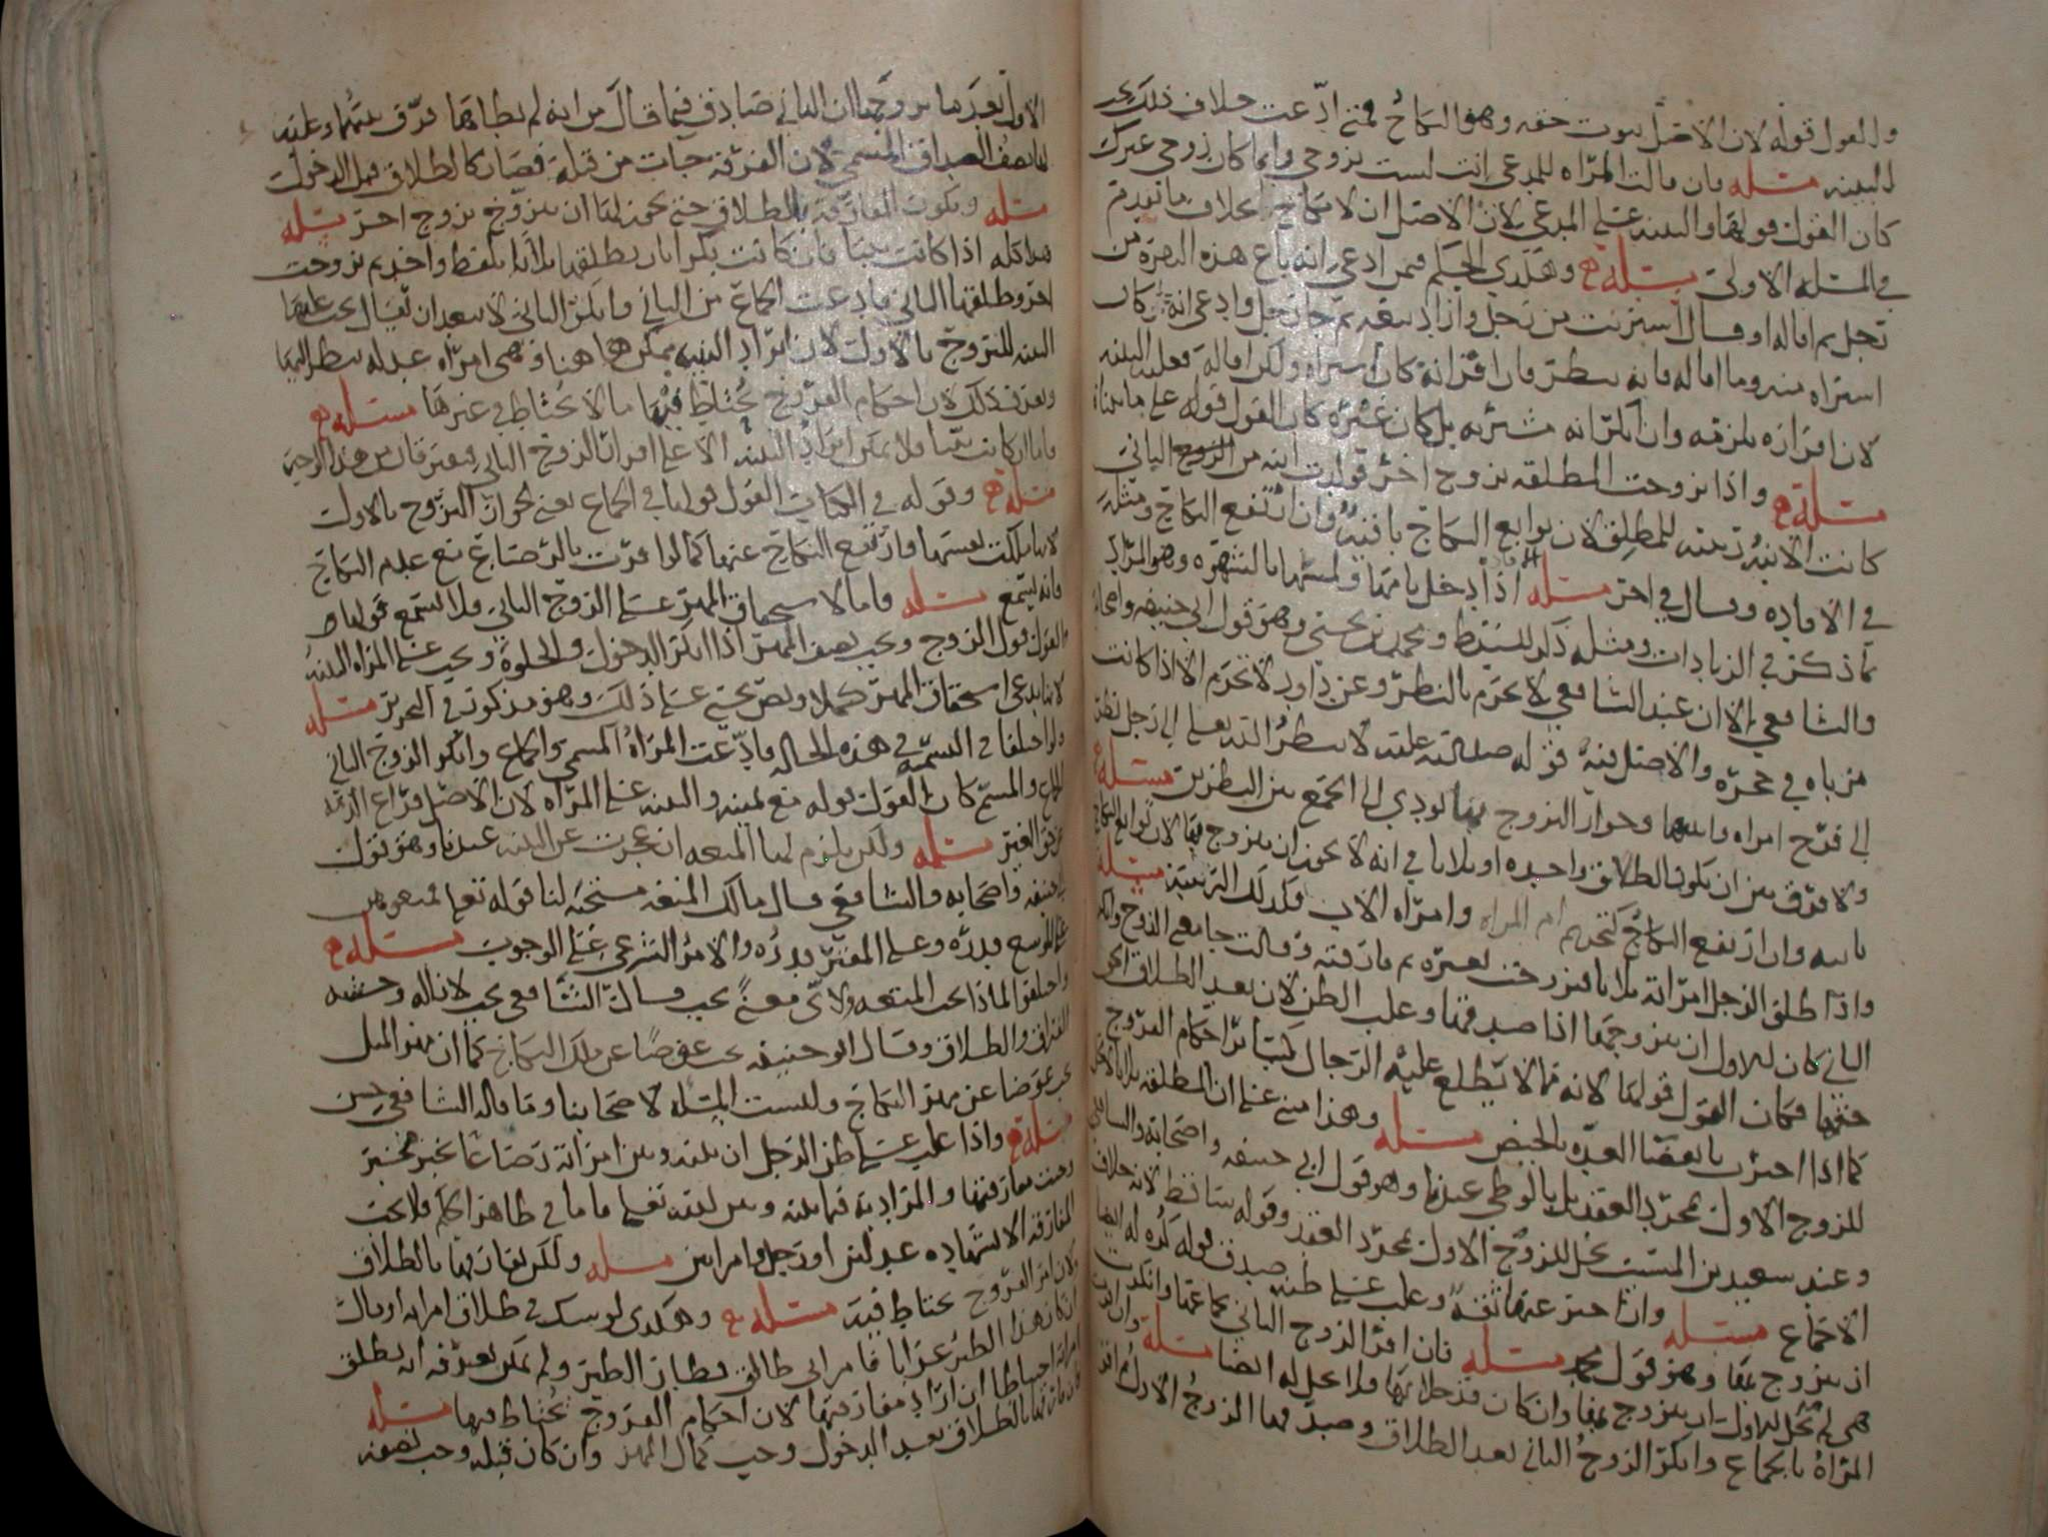 والقول قوله لان الاصل ثبوت حقه وهو النكاح فمتى ادعت خلاف ذلك
البينه مسئله فان قالت المرأه للمدعي انت لست بزوجي وانما كان زوجي غيرك
كان القول قولها والبينه على المدعي لان الاصل ان لا نكاح بخلاف ما تقدم
في المسئله الاولى مسئله وهكذى الحكم فيمن ادعى انه باع هذه البقره من
رجل ثم اقاله او قال اشتريت من رجل واراد بيعه ثم جا رجل وادعى انه كان
اشتراه منه وما اقاله فانه ينظر فان اقر انه كان اشتراه ولكن اقاله فعليه البينه
لان اقراره يلزمه وان انكر انه مشتريه بل كان غيره كان القول قوله على ما بيناه
مسئله واذا تزوجت المطلقه بزوج اخر فولدت ابنه من الزوج الثاني
كانت الابنه ربيبه للمطلق لان توابع النكاح باقيه وان ارتفع النكاح ومثله
في الافاده وقال في اخر مسئله اذا دخل بامها ولمسها بالشهوه وهو المراد
بما ذكر في الزيادات ومثله ذكر للسيد ط ومحمد بن يحيى وهو قول ابي حنيفه واصحابه
والشافعي الا ان عند الشافعي لا يحرم بالنظر وعن داود لا تحرم الا اذا كانت
مرباه في حجره والاصل فيه قوله صلى الله عليه لا ينظر الله تعالى الى رجل نظر
الى فرج امراه وابنتها وجواز التزوج بها يودي الى الجمع بين النظرين مسئله
ولا فرق بين ان يكون الطلاق واحده او ثلاثا في انه لا يجوز ان يتزوج بها لان توابع النكاح
باقيه وان ارتفع النكاح كتحريم ام المراه وامراه الاب فكذلك الربيبه مسئله
واذا طلق الرجل امراته ثلاثا فتزوجت بغيره ثم فارقته وقالت جامعني الزوج وانكر
الثاني كان للاول ان يتزوجها اذا صدقها وغلب الظن لان بعد الطلاق
حقها فكان القول قولها لانه مما لا يطلع عليه الرجال كسائر احكام الفروج
كما اذا اخبرت بانقضا العده بالحيض مسئله وهذا مبني على ان المطلقه ثلاثا لا تحل
للزوج الاول بمجرد العقد بل بالوطي عندنا وهو قول ابي حنيفه واصحابه والشافعي
وعند سعيد بن المسيب تحل للزوج الاول بمجرد العقد وقوله ساقط لانه خلاف
الاجماع مسئله وان اخبر عنها ثقه وغلب على ظنه صدق قوله جاز له ايضا
ان يتزوج بها وهو قول محمد مسئله فان اقر الزوج الثاني بجماعها وانكرت
هي لم تحل للاول ان يتزوج بها وان كان قد خلا بها فلا تحل له ايضا مسئله وان اقرت
المرأه بالجماع وانكر الزوج الثاني بعد الطلاق وصدقها الزوج الاول
الاول بعد ما تزوجها ان الثاني صادق فيما قال من انه لم يطاها فرق بينهما وعليه
لها نصف الصداق المسمى لان الفرقه جات من قبله فصار كالطلاق قبل الدخول
مسئله وتكون المفارقه بالطلاق حتى يجوز لها ان تتزوج بزوج اخر مسئله
هذا كله اذا كانت ثيبا فان كانت بكرا بان يطلقها ثلاثا بلفظ واحد ثم تزوجت
اخر وطلقها الثاني فادعت الجماع من الثاني وانكر الثاني لا يبعد ان يقال يجب عليها
البينه للتزوج بالاول لان ايراد البينه يمكن هاهنا وهي امراه عدله ينظر اليها
ويعرف ذلك لان احكام الفروج يحتاط فيها ما لا يحتاط في غيرها مسئله
فاما ان كانت ثيبا فلا يمكن ايراد البينه الا على اقرار الزوج الثاني فيفترقان من هذا الوجه
مسئله وقوله في الكتاب القول قولها في الجماع يعني لجواز التزوج بالاول
لانها ملكت نفسها وارتفع النكاح عنها كما لو اقرت بالرضاع مع عدم النكاح
فانه يسمع مسئله واما لاستحقاق المهر على الزوج الثاني فلا يسمع قولها و
القول قول الزوج ويجب نصف المهر اذا انكر الدخول والخلوه ويجب على المراه البينه
لانها تدعي استحقاق المهر كملا ونص يحيى على ذلك وهو مذكور في التحرير مسئله
ولو اختلفا في التسميه في هذه الحاله فادعت المرأه المسمى والجماع وانكر الزوج الثاني
الجماع والمسمى كان القول قوله مع يمينه والبينه على المرأه لان الاصل فراغ الذمه
عن حق الغير مسئله ولكن يلزم لها المتعه ان عجزت عن البينه عندنا وهو قول
ابي حنيفه واصحابه والشافعي وقال مالك المتعه مستحبه لنا قوله تعالى فمتعوهن
على الموسع قدره وعلى المقتر قدره والامر الشرعي على الوجوب مسئله
واختلفوا لماذا تجب المتعه ولاي معنى تجب فقال الشافعي تجب لاناله وحشه
الفراق والطلاق وقال ابو حنيفه تجب عوضا عن ملك النكاح كما ان مهر المثل
يجب عوضا عن مهر النكاح وليست المسئله لاصحابنا وما قاله الشافعي حسن
مسئله واذا غلب على ظن الرجل ان بينه وبين امراته رضاعا بخبر مخبر
وجبت مفارقتها والمراد به فيما بينه وبين الله تعالى فاما في ظاهر الحكم فلا تجب
المفارقه الا بشهاده عدلين او رجل وامراتين مسئله ولكن يفارقها بالطلاق
لان امر الفروج يحتاط فيه مسئله وهكذى لو شك في طلاق امراته او قال
ان كان هذا الطير غرابا فامراتي طالق فطار الطير ولم يمكن معرفته انه يطلق
امراته احتياطا ان اراد مفارقتها لان احكام الفروج يحتاط فيها مسئله
فان فارقها بالطلاق بعد الدخول وجب كمال المهر وان كان قبله وجب نصفه